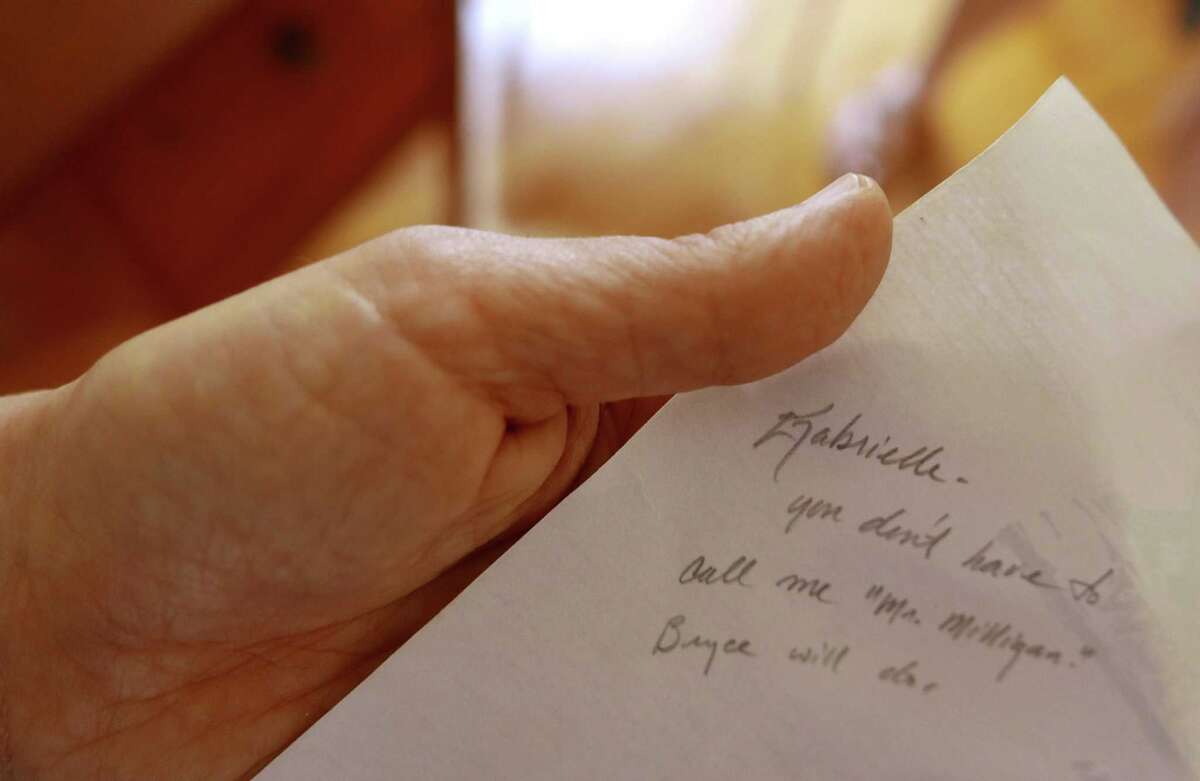 Gabrielle.
you don't have to
call me "Mr. Milligan."
Bryce will do.